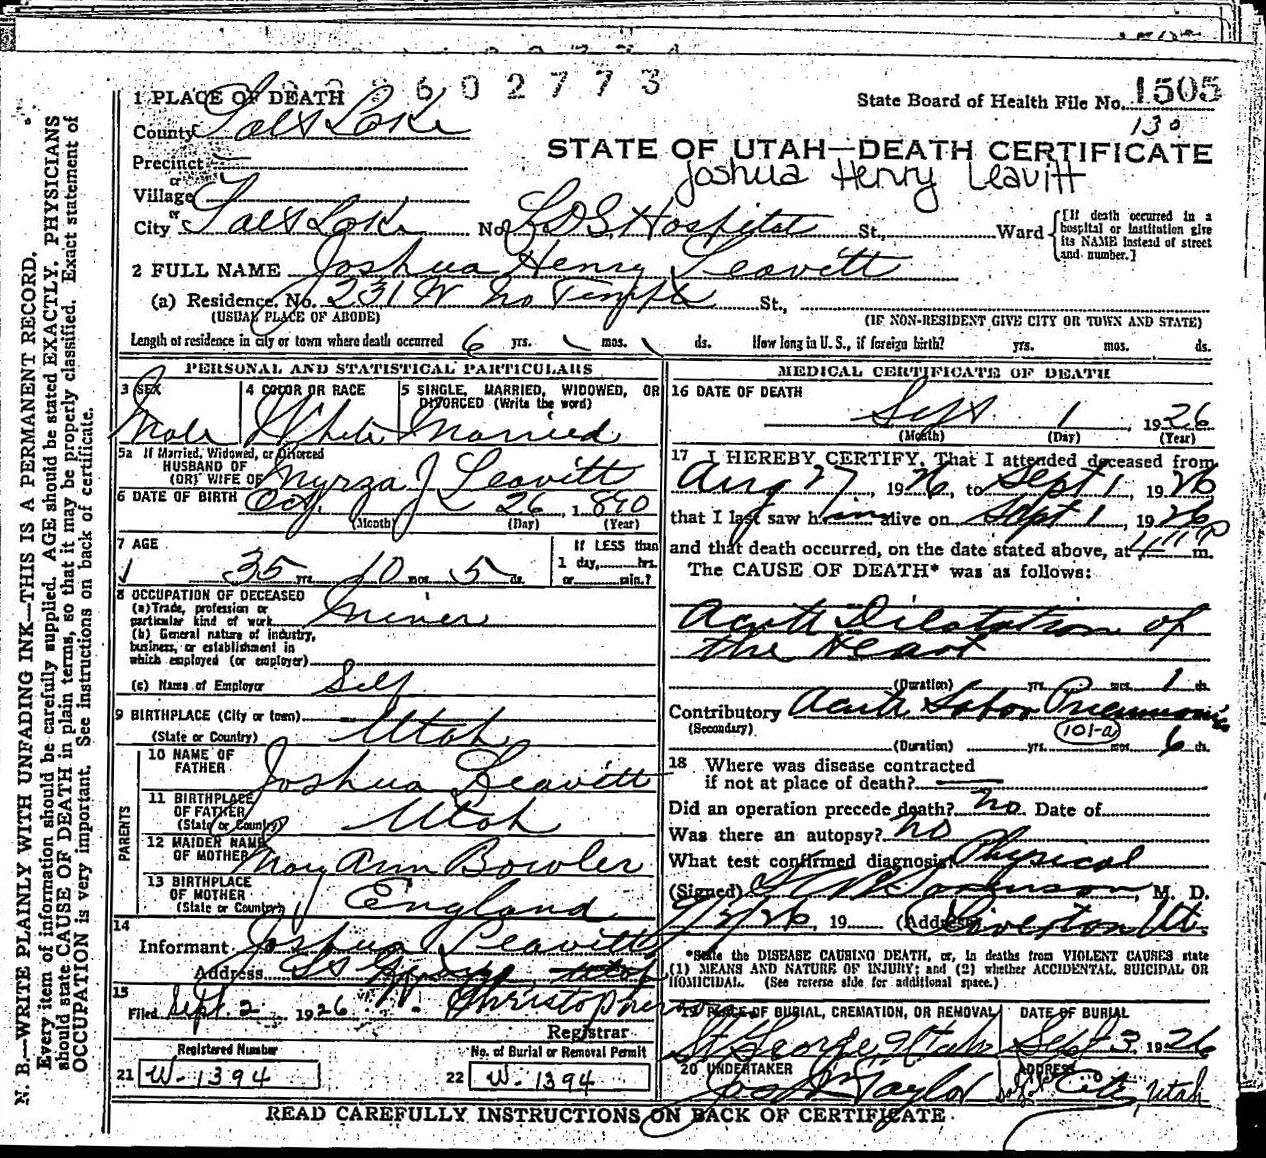 602773
1 PLACE OF DEATH
State Board of Health File No. 1505
130
County Salt Lake
STATE OF UTAH—DEATH CERTIFICATE
Precinct
or
Joshua Henry Leavitt
Village
or
City Salt Lake No. LDS Hospital St., Ward
[If death occurred in a hospital or institution give its NAME instead of street and number.]
2 FULL NAME Joshua Henry Leavitt
(a) Residence. No. 231 W No Temple St.,
(USUAL PLACE OF ABODE) (IF NON-RESIDENT GIVE CITY OR TOWN AND STATE)
Length of residence in city or town where death occurred 6 yrs. mos. ds. How long in U. S., if foreign birth? yrs. mos. ds.
PERSONAL AND STATISTICAL PARTICULARS
3 SEX
Male
4 COLOR OR RACE
White
5 SINGLE, MARRIED, WIDOWED, OR DIVORCED (Write the word)
Married
5a If Married, Widowed, or Divorced
HUSBAND OF
(OR) WIFE OF Myrza J Leavitt
6 DATE OF BIRTH Oct. 26, 1890
(Month) (Day) (Year)
7 AGE
35 yrs. 10 mos. 5 ds.
If LESS than
1 day, hrs.
or min.?
8 OCCUPATION OF DECEASED
(a) Trade, profession or
particular kind of work Miner
(b) General nature of industry,
business, or establishment in
which employed (or employer)
(c) Name of Employer Self
9 BIRTHPLACE (City or town)
(State or Country) Utah
PARENTS
10 NAME OF
FATHER Joshua Leavitt
11 BIRTHPLACE
OF FATHER
(State or Country) Utah
12 MAIDEN NAME
OF MOTHER May Ann Bowler
13 BIRTHPLACE
OF MOTHER
(State or Country) England
14
Informant Joshua Leavitt
Address Utah
15
Filed Sept. 2 1926 Christopherson
Registrar
Registered Number
21 W-1394
No. of Burial or Removal Permit
22 W-1394
MEDICAL CERTIFICATE OF DEATH
16 DATE OF DEATH
Sept 1, 1926
(Month) (Day) (Year)
17 I HEREBY CERTIFY, That I attended deceased from
Aug 27, 1926, to Sept 1, 1926
that I last saw him alive on Sept 1, 1926
and that death occurred, on the date stated above, at m.
The CAUSE OF DEATH* was as follows:
Acute Dilatation of
the Heart
(Duration) yrs. mos. 1 ds.
Contributory Acute Lobar Pneumonia
(Secondary)
101-a
(Duration) yrs. mos. 6 ds.
18 Where was disease contracted
if not at place of death?
Did an operation precede death? no Date of
Was there an autopsy? no
What test confirmed diagnosis Physical
(Signed) Sorenson, M. D.
9/2/26, 19 (Address) Riverton Ut.
*State the DISEASE CAUSING DEATH, or, in deaths from VIOLENT CAUSES state
(1) MEANS AND NATURE OF INJURY; and (2) whether ACCIDENTAL, SUICIDAL OR
HOMICIDAL. (See reverse side for additional space.)
19 PLACE OF BURIAL, CREMATION, OR REMOVAL
St George, Utah
DATE OF BURIAL
Sept 3, 1926
20 UNDERTAKER
Jos Wm Taylor
ADDRESS
City, Utah
READ CAREFULLY INSTRUCTIONS ON BACK OF CERTIFICATE.
N. B.—WRITE PLAINLY WITH UNFADING INK—THIS IS A PERMANENT RECORD.
Every item of information should be carefully supplied. AGE should be stated EXACTLY. PHYSICIANS
should state CAUSE OF DEATH in plain terms, so that it may be properly classified. Exact statement of
OCCUPATION is very important. See instructions on back of certificate.